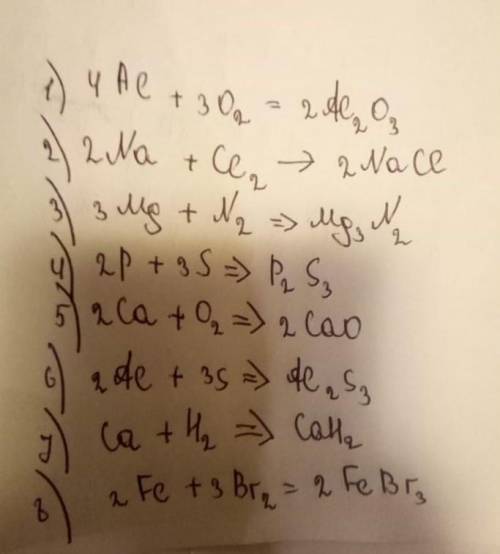 1) 4Al + 3O₂ = 2Al₂O₃
2) 2Na + Cl₂ → 2NaCl
3) 3Mg + N₂ ⇒ Mg₃N₂
4) 2P + 3S ⇒ P₂S₃
5) 2Ca + O₂ ⇒ 2CaO
6) 2Al + 3S ⇒ Al₂S₃
7) Ca + H₂ ⇒ CaH₂
8) 2Fe + 3Br₂ = 2FeBr₃